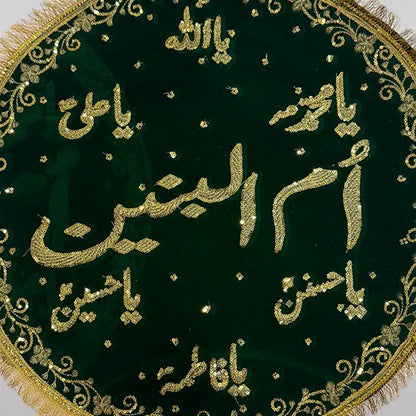 يا الله
يا محمد
يا علي
أم البنين
يا حسن
يا حسين
يا فاطمة